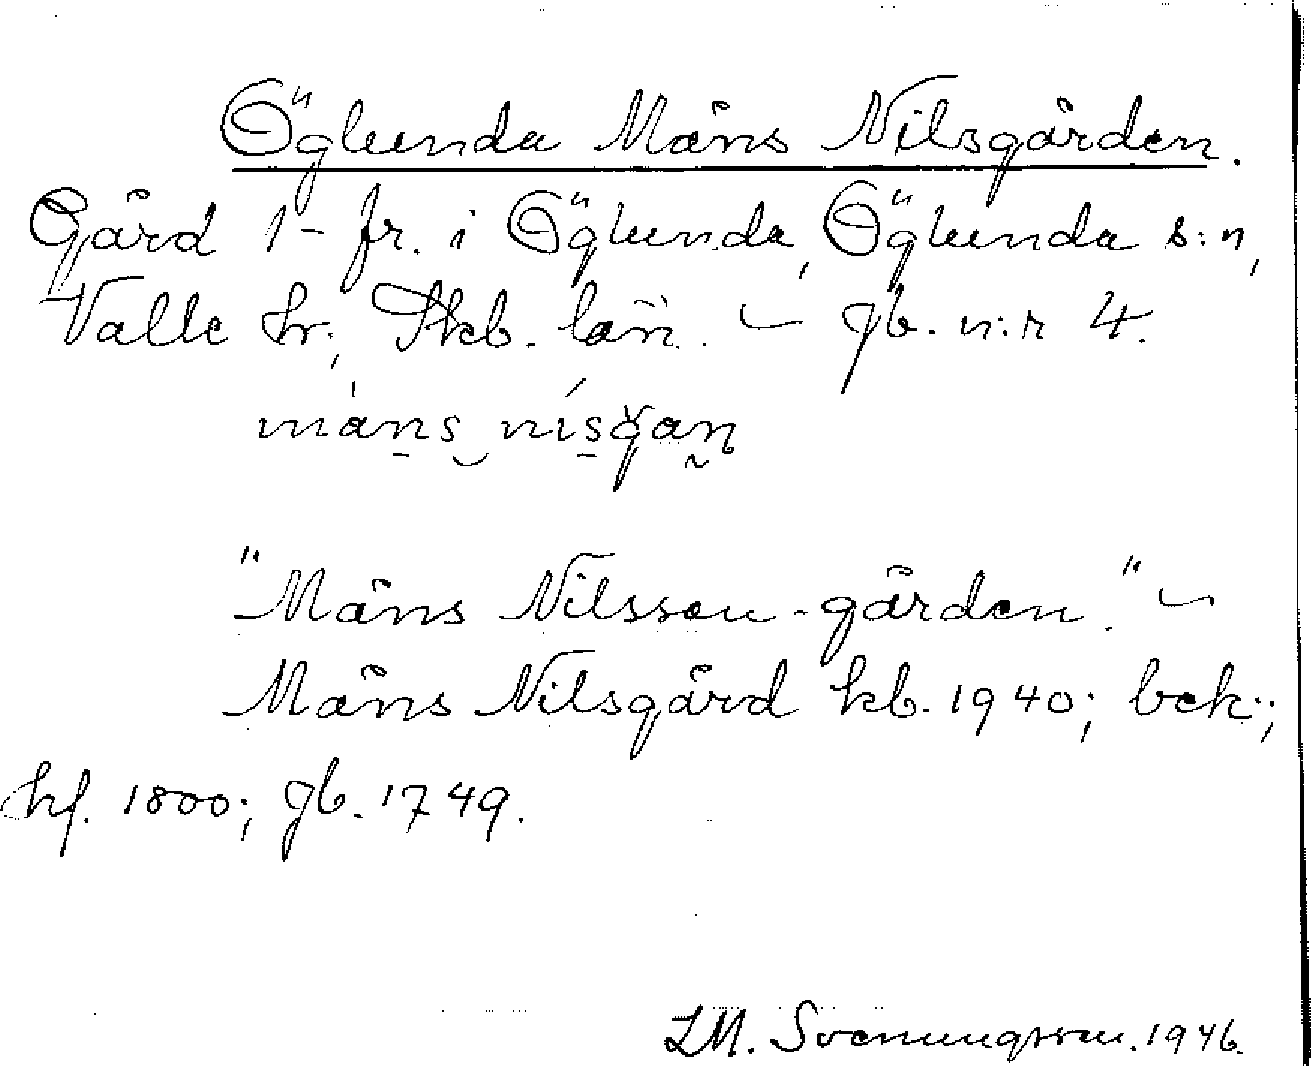 Öglunda Måns Nilsgården.
Gård 1- fr. i Öglunda, Öglunda s:n,
Valle hr; Skb. län. — jb. n:r 4.
"Måns Nilsson-gården." —
Måns Nilsgård kb. 1940; bek:;
hf. 1800; jb. 1749.
LM. Svenungsson. 1946.